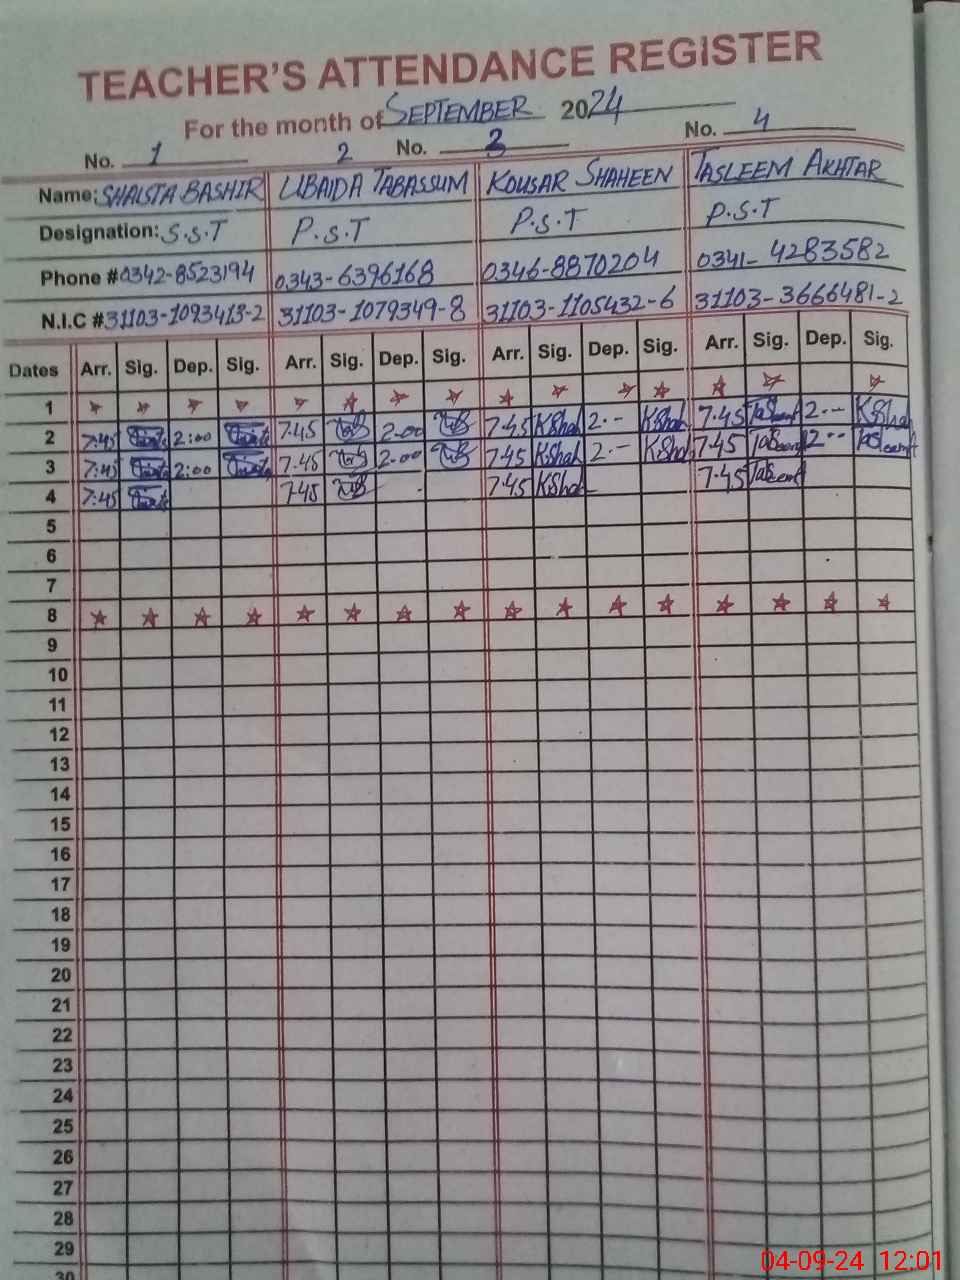 TEACHER'S ATTENDANCE REGISTER
For the month of SEPTEMBER 2024
No. 1 2 No. 3 No. 4
Name: SHAISTA BASHIR UBAIDA TABASSUM KOUSAR SHAHEEN TASLEEM AKHTAR
Designation: S.S.T P.S.T P.S.T P.S.T
Phone # 0342-8523194 0343-6396168 0346-8870204 0341-4283582
N.I.C # 31103-1093413-2 31103-1079349-8 31103-1105432-6 31103-3666481-2
Dates Arr. Sig. Dep. Sig. Arr. Sig. Dep. Sig. Arr. Sig. Dep. Sig. Arr. Sig. Dep. Sig.
1
2 7:45 2:00 7.45 2.00 7.45 KShah 2.- KShah 7.45 Tasleem 2-- KShah
3 7:45 2:00 7.45 2.00 7.45 KShah 2.- KShah 7.45 Tasleem 2-- Tasleem
4 7:45 7.45 7.45 KShah 7.45 Tasleem
5
6
7
8
9
10
11
12
13
14
15
16
17
18
19
20
21
22
23
24
25
26
27
28
29
30
04-09-24 12:01